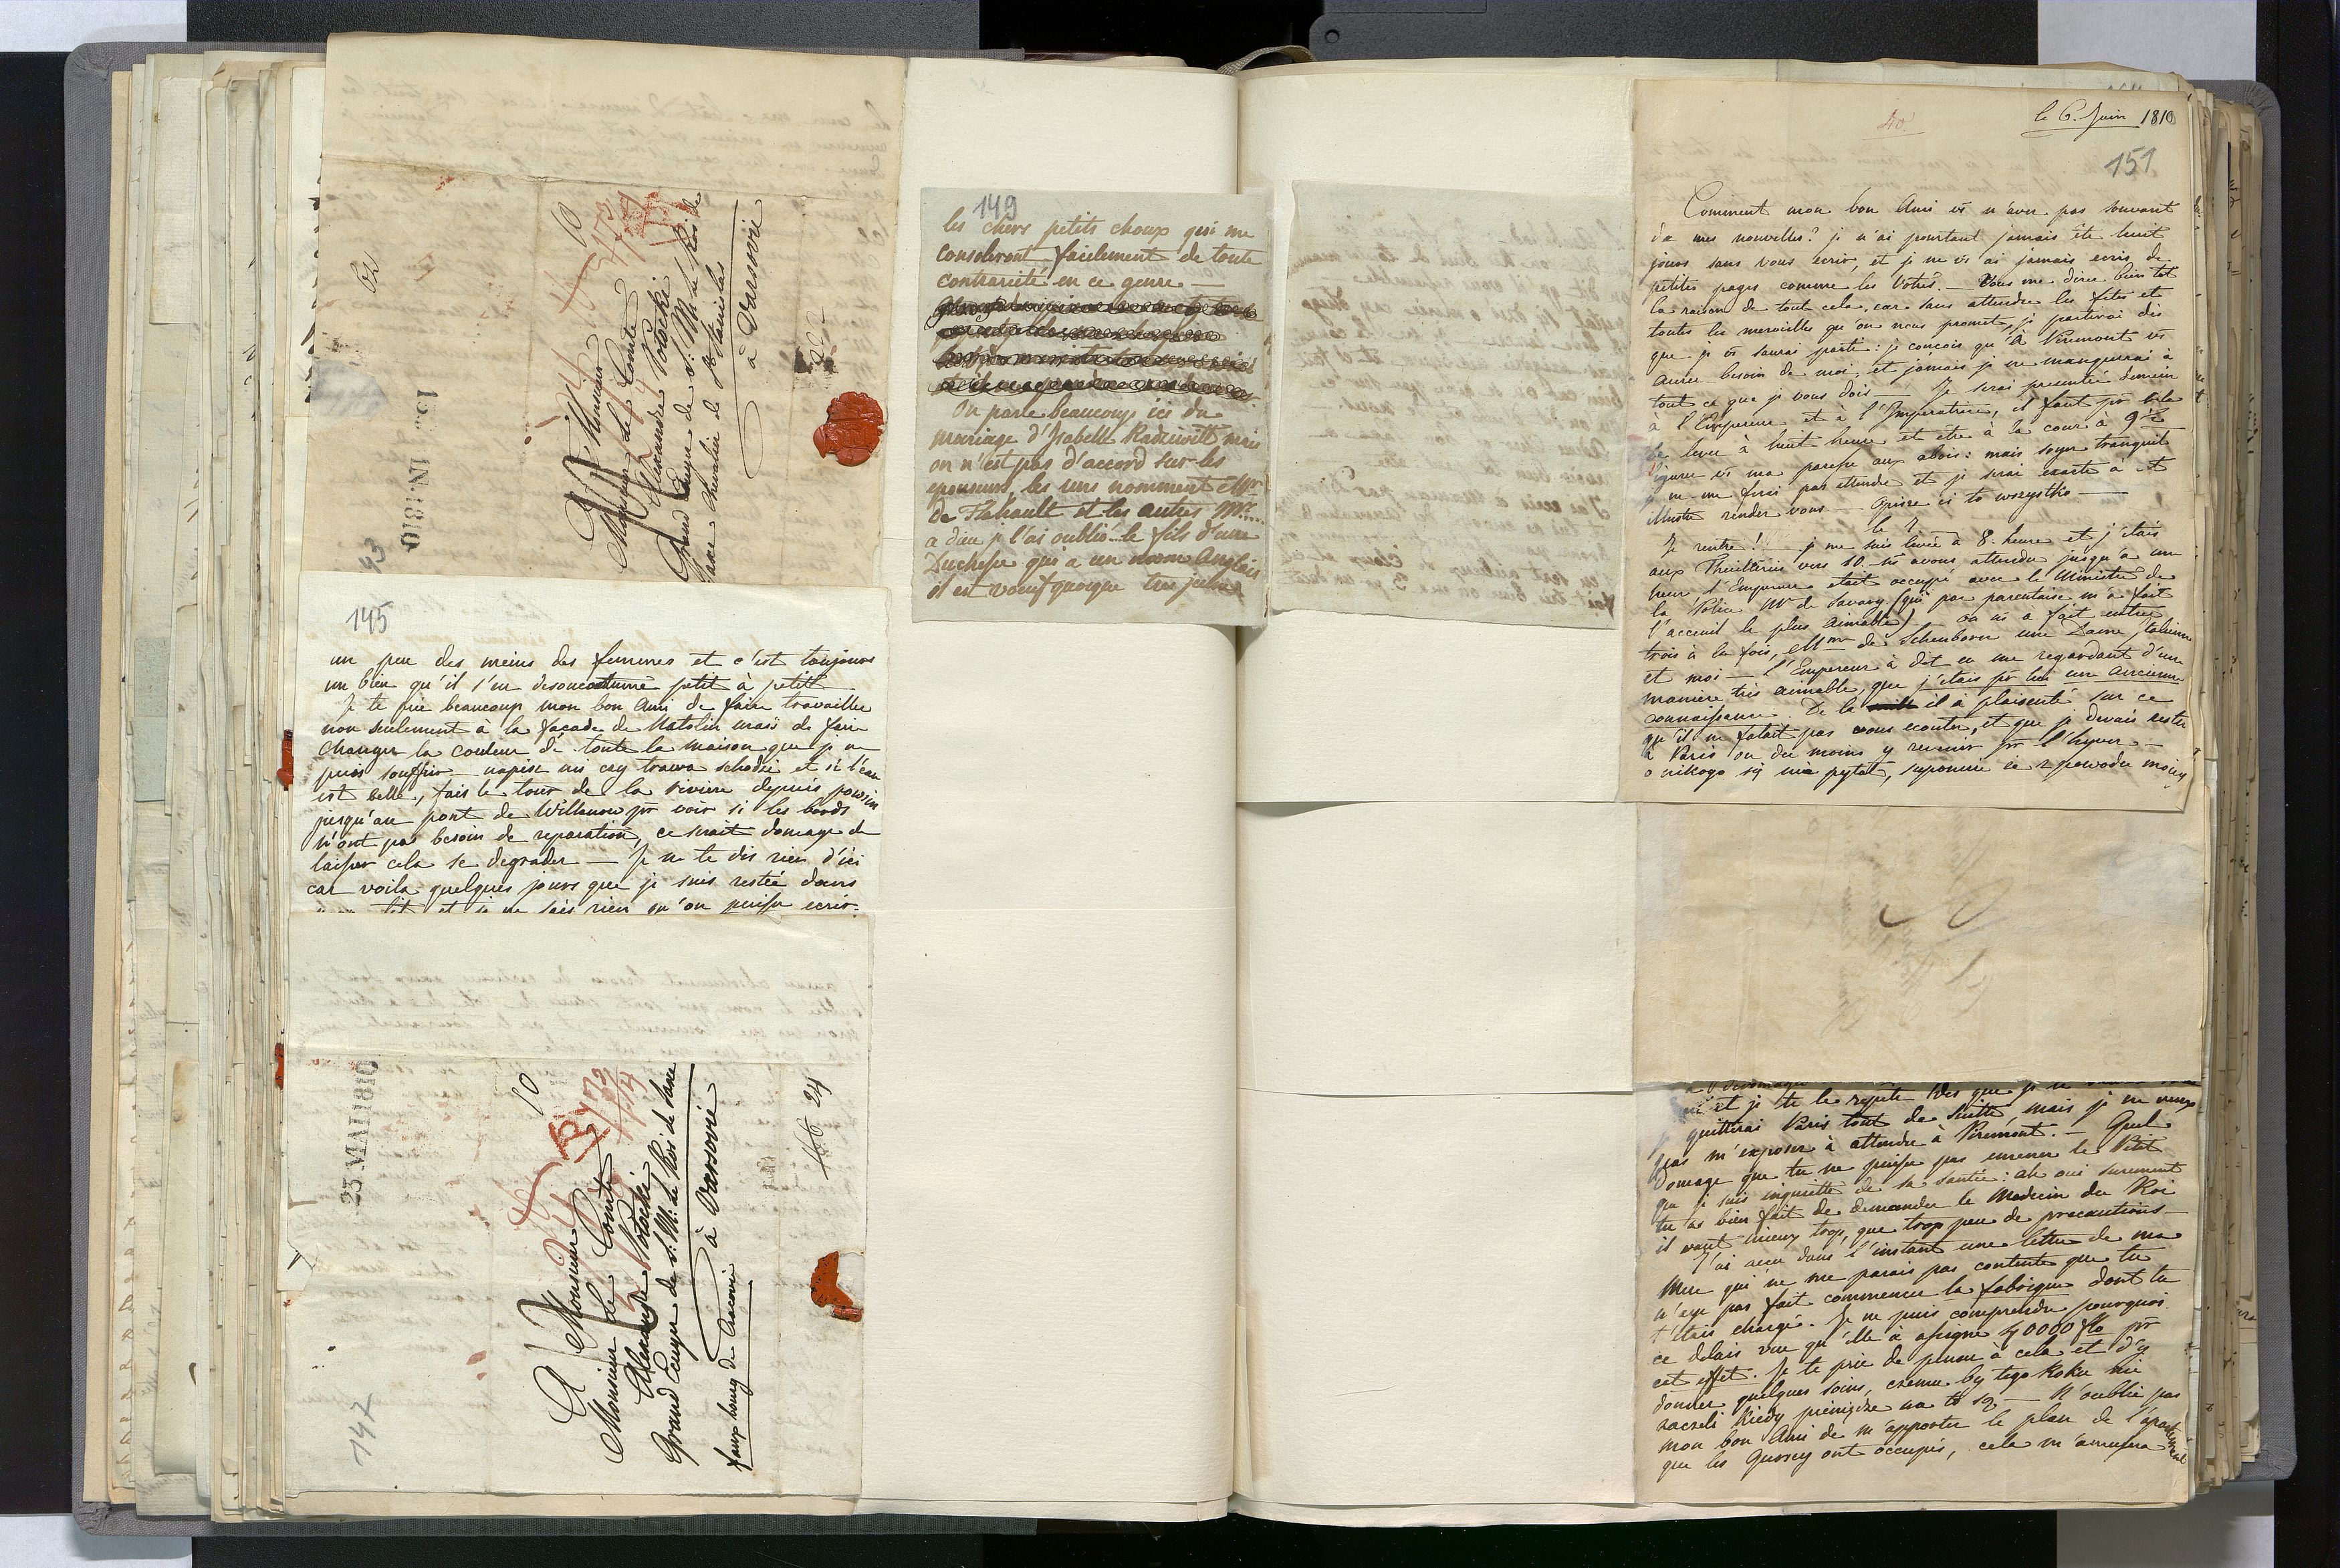 62
10
A Monsieur
Monsieur le Comte
Alexandre Potocki
Grand Ecuyer de S: M: le Roi de
Saxe Chevalier de St Stanislas
à Varsovie
15 JUIN 1810
145
un peu des meins des femmes et c'est toujours
un bien qu'il s'en desoucoutume petit à petit
Je te prie beaucoup mon bon Ami de faire travailler
non seulement à la façade de Natolin mais de faire
changer la couleur de toute la maison que je ne
puis souffrir napisz mi czy trawa schodzi et si l'eau
est belle, fais le tour de la riviere depuis powsin
jusqu'au pont de Willanow pr voir si les bords
n'ont pas besoin de reparation, ce serait domage de
laisser cela se degrader — Je ne te dis rien d'ici
car voila quelques jours que je suis restée dans
lit et je ne sais rien qu'on puisse ecrire
23 MAI 1810
147
10
A Monsieur
Monsieur le Comte
Alexandre Potocki
Grand Ecuyer de S: M: le Roi de Saxe
à Varsovie
faux bourg de Cracovie
24
149
les chers petits choux qui me
consoleront facilement de toute
contrarieté en ce genre —
On parle beaucoup ici du
mariage d'Isabelle Radziwill mais
on n'est pas d'accord sur les
epouseurs, les uns nomment Mr
de Flahault et les autres Mr....
a dieu je l'ai oublié le fils d'une
Duchesse qui a un nom Anglais
il est voeuf quoique tres jeune
40.
le 6. Juin 1810
151
Comment mon bon Ami vs n'avez pas souvent
de mes nouvelles? je n'ai pourtant jamais été huit
jours sans vous ecrire, et je ne vs ai jamais ecris de
petites pages comme les Votres. — Vous me direz bien tot
la raison de tout cela, car sans attendre les fetes et
toutes les merveilles qu'on nous promet, je partirai dès
que je vs saurai parti: je conçois qu'à Pirmont vs
aurez besoin de moi, et jamais je ne manquerai à
tout ce que je vous dois — Je serai presentée demain
à l'Empereur et à l'Imperatrice, il faut pr cela
se lever à huit heure et etre à la cour à 9 1/2
figurez vs ma paresse aux abois: mais soyez tranquil
je ne me ferai pas attendre et je serai exacte à cet
illustre rendez vous — Opisze ci to wszystko —
le 7
Je rentre! — je me suis levée à 8. heure et j'etais
aux Thuilleries vers 10. — ns avons attendu jusqu'à une
heure l'Empereur etait occupé avec le Ministre de
la Police Mr de Savary (qui par parentaise m'a fait
l'acceuil le plus aimable) — on ns a fait entrer
trois à la fois, Mme de Schenborn une Dame Italienne
et moi — l'Empereur à dit en me regardant d'une
maniere très aimable, que j'etais pr lui une ancienne
connaissance. De la il à plaisenté sur ce
qu'il ne falait pas vous ecouter, et que je devais rester
à Paris ou du moins y revenir pr l'hyver. —
o nikogo się nie pytał,
et je te le repete dès que je
je quitterai Paris tout de suitte mais je ne veux
pas m'exposer à attendre à Piremont. — Quel
Domage que tu ne puisse pas emmener le Petit
que je suis inquiette de sa santée: ah oui surement
tu as bien fait de demander le Medecin du Roi
il vaut mieux trop, que trop peu de precautions
J'ai recu dans l'instant une lettre de ma
Mere qui ne me parais pas contente que tu
n'aye pas fait commencer la fabrique dont tu
t'etais chargé. Je ne puis comprendre pourquoi
ce delais vue qu'elle à assigné 40000 flo pr
cet effet. Je te prie de penser à cela et d'y
donner quelques soins, czemu by tego Roku nie
zaczeli kiedy pieniądze na to są — N'oublie pas
mon bon Ami de m'apporter le plan de l'apartement
que les Gussey ont occupés, cela m'amusera